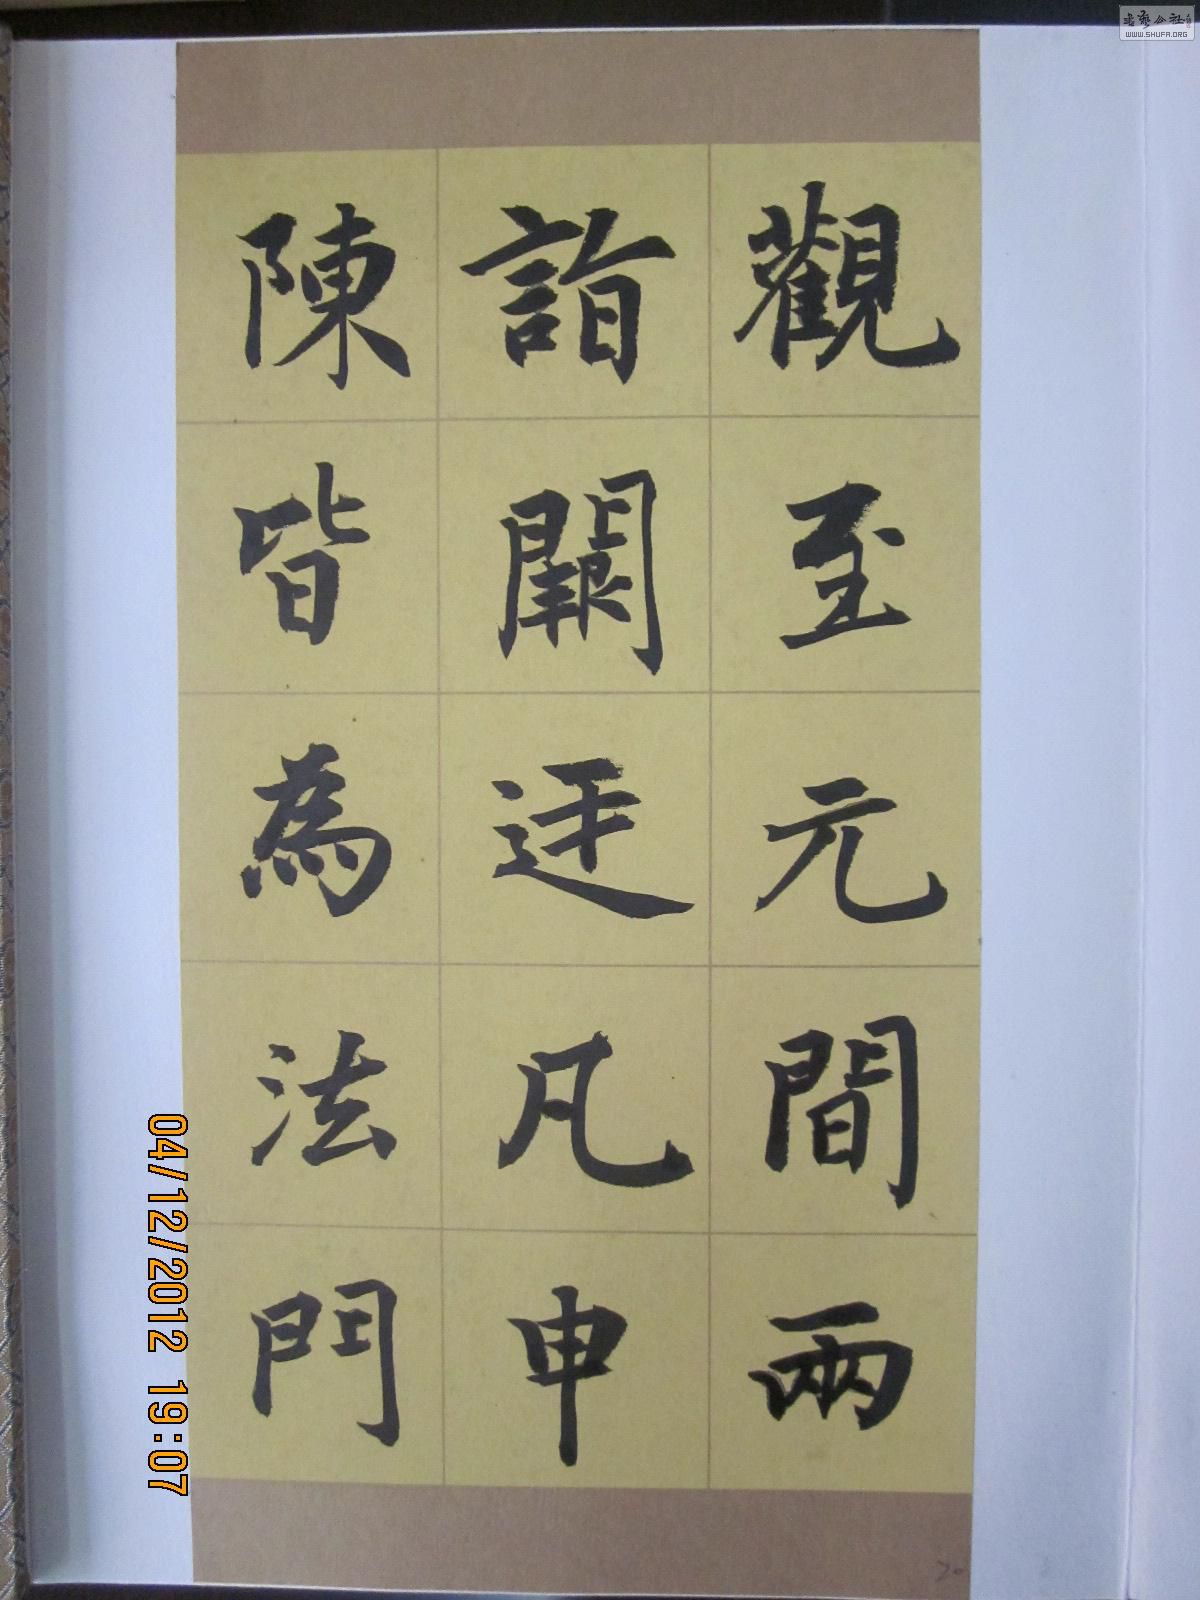 觀至元間兩
詣闕迋凡申
陳皆為法門
04/12/2012 19:07
书艺公社
WWW.SHUFA.ORG
20